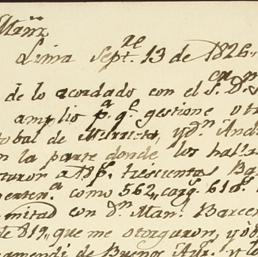 Man.ª
Lima Sept.re 13 de 1826
en m
de lo acordado con el S. D.
amplio p.ª q.e gestione otr
tobal de Murrieta, y d.n And
en la parte donde los halla
cturon a 18 p. trescientas Ba
menten.s como 562,, carg. 61 @.s
mitad con d.n Man. Barce
de 819,, que me otorgaron, y
amendi de Buenos Ay.s y lo